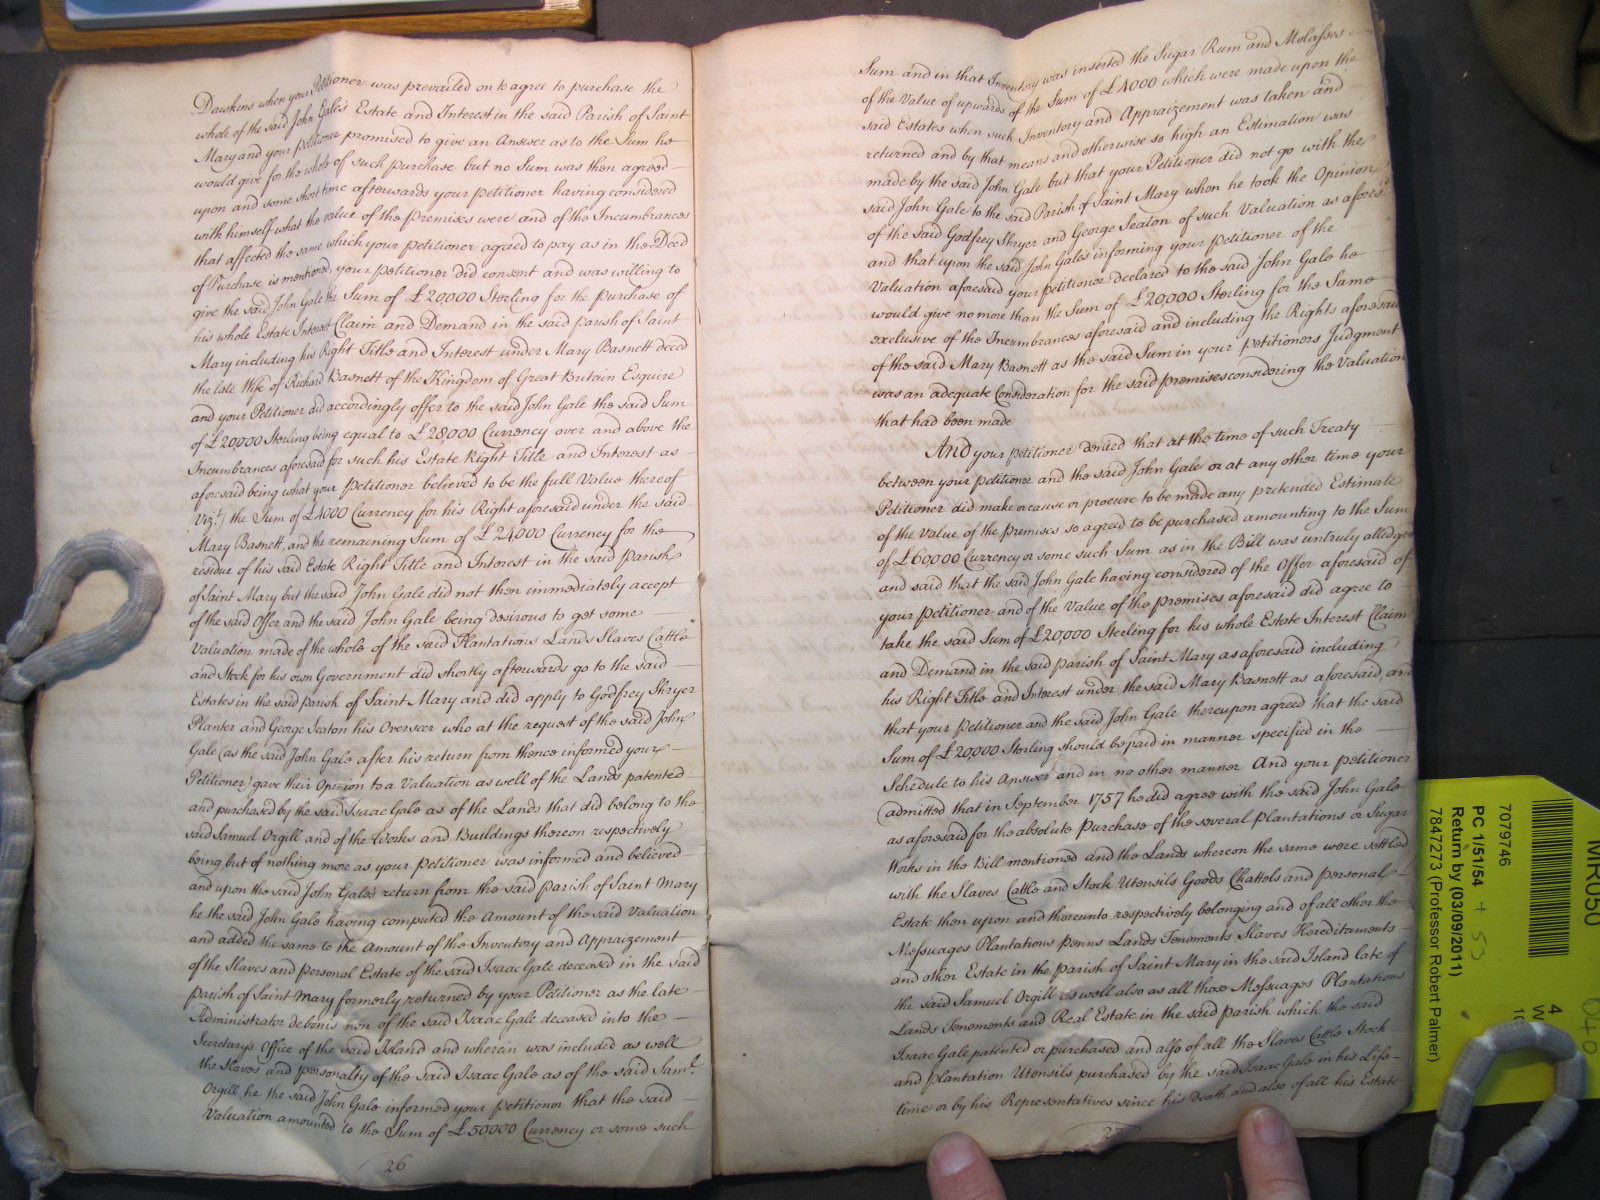 Dawkins when your Petitioner was prevailed on to agree to purchase the
whole of the said John Gale's Estate and Interest in the said Parish of Saint
Mary and your Petitioner promised to give an Answer as to the Sum he
would give for the whole of such purchase but no Sum was then agreed
upon and some short time afterwards your Petitioner having considered
with himself what the value of the premises were and of the Incumbrances
that affected the same which your Petitioner agreed to pay as in the Deed
of Purchase is mentioned, your Petitioner did consent and was willing to
give the said John Gale the Sum of £20,000 Sterling for the Purchase of
his whole Estate Interest Claim and Demand in the said Parish of Saint
Mary including his Right Title and Interest under Mary Basnett deced
the late Wife of Richard Basnett of the Kingdom of Great Britain Esquire
and your Petitioner did accordingly offer to the said John Gale the said Sum
of £20,000 Sterling being equal to £28,000 Currency over and above the
Incumbrances aforesaid for such his Estate Right Title and Interest as
aforesaid being what your Petitioner believed to be the full Value thereof
Vizt.) the Sum of £4000 Currency for his Right aforesaid under the said
Mary Basnett, and the remaining Sum of £24000 Currency for the
residue of his said Estate Right Title and Interest in the said Parish
of Saint Mary but the said John Gale did not then immediately accept
of the said Offer and the said John Gale being desirous to get some
Valuation made of the whole of the said Plantations Lands Slaves Cattle
and Stock for his own Government did shortly afterwards go to the said
Estates in the said Parish of Saint Mary and did apply to Godfrey Shryer
Planter and George Seaton his Overseer who at the request of the said John
Gale (as the said John Gale after his return from thence informed your
Petitioner) gave their Opinion to a Valuation as well of the Lands patented
and purchased by the said Isaac Gale as of the Lands that did belong to the
said Samuel Orgill and of the Works and Buildings thereon respectively
being but of nothing more as your Petitioner was informed and believed
and upon the said John Gale's return from the said Parish of Saint Mary
he the said John Gale having computed the Amount of the said Valuation
and added the same to the Amount of the Inventory and Appraizement
of the Slaves and personal Estate of the said Isaac Gale deceased in the said
Parish of Saint Mary formerly returned by your Petitioner as the late
Administrator de bonis non of the said Isaac Gale deceased into the
Secretarys Office of the said Island and wherein was included as well
the Slaves and personalty of the said Isaac Gale as of the said Saml.
Orgill, he the said John Gale informed your Petitioner that the said
Valuation amounted to the Sum of £50,000 Currency or some such
26
Sum and in that Inventory was inserted the Sugar Rum and Molasses
of the Value of upwards of the Sum of £4000 which were made upon the
said Estates when such Inventory and Appraizement was taken and
returned and by that means and otherwise so high an Estimation was
made by the said John Gale but that your Petitioner did not go with the
said John Gale to the said Parish of Saint Mary when he took the Opinion
of the said Godfrey Shryer and George Seaton of such Valuation as aforesd.
and that upon the said John Gales informing your Petitioner of the
Valuation aforesaid your Petitioner declared to the said John Gale he
would give no more than the Sum of £20,000 Sterling for the Same
exclusive of the Incumbrances aforesaid and including the Rights aforesaid
of the said Mary Basnett as the said Sum in your Petitioners Judgment
was an adequate Consideration for the said premises considering the Valuation
that had been made
And your Petitioner denied that at the time of such Treaty
between your Petitioner and the said John Gale or at any other time your
Petitioner did make or cause or procure to be made any pretended Estimate
of the Value of the premises so agreed to be purchased amounting to the Sum
of £60000 Currency or some such Sum as in the Bill was untruly alledged
and said that the said John Gale having considered of the Offer aforesaid of
your Petitioner and of the Value of the premises aforesaid did agree to
take the said Sum of £20,000 Sterling for his whole Estate Interest Claim
and Demand in the said Parish of Saint Mary as aforesaid including
his Right Title and Interest under the said Mary Basnett as aforesaid, and
that your Petitioner and the said John Gale thereupon agreed that the said
Sum of £20,000 Sterling should be paid in manner specified in the
Schedule to his Answer and in no other manner And your Petitioner
admitted that in September 1757 he did agree with the said John Gale
as aforesaid for the absolute Purchase of the several Plantations or Sugar
Works in the Bill mentioned and the Lands whereon the same were settled
with the Slaves Cattle and Stock Utensils Goods Chattels and personal
Estate then upon and thereunto respectively belonging and of all other the
Messuages Plantations Penns Lands Tenements Slaves Hereditaments
and other Estate in the Parish of Saint Mary in the said Island late of
the said Samuel Orgill as well also as all those Messuages Plantations
Lands Tenements and Real Estate in the said Parish which the said
Isaac Gale patented or purchased and also of all the Slaves Cattle Stock
and Plantation Utensils purchased by the said Isaac Gale in his Life-
time or by his Representatives since his Death, and also of all his Estate
27
MR050
040
4
7079746
PC 1/51/54 + 53
Return by (03/09/2011)
7847273 (Professor Robert Palmer)